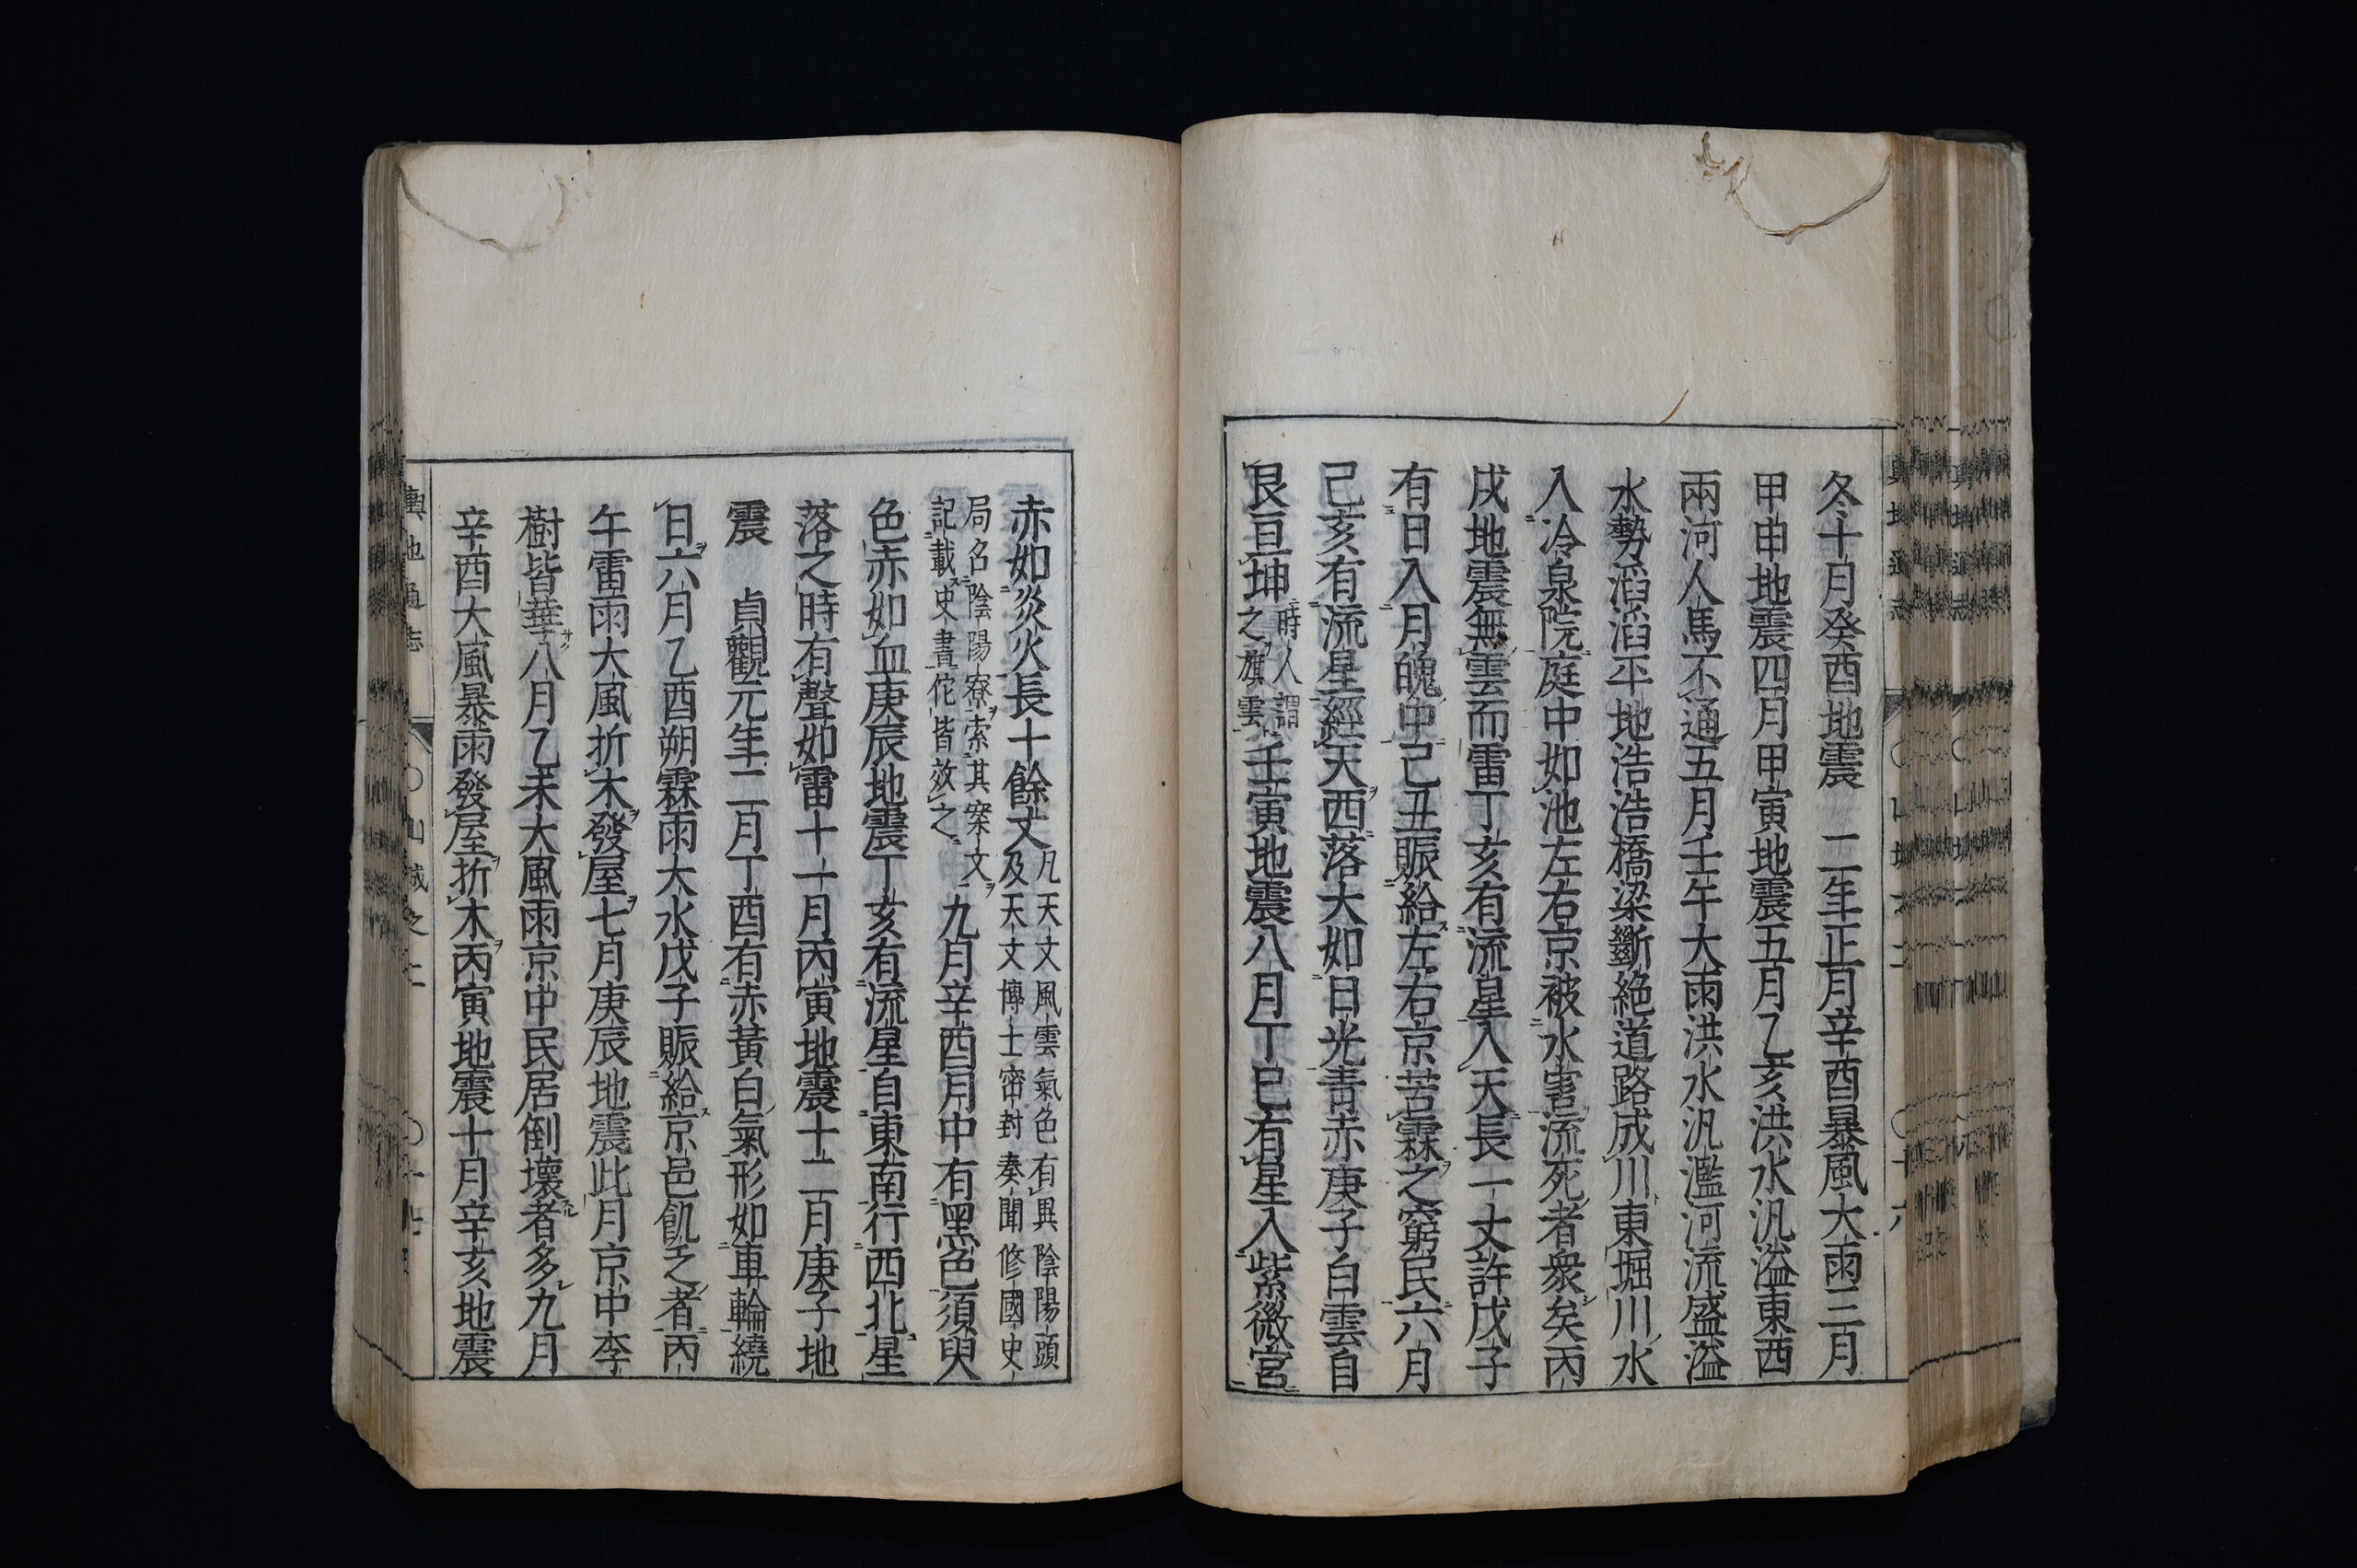 冬十月癸酉地震　二年正月辛酉暴風大雨三月
甲申地震四月甲寅地震五月乙亥洪水汎溢東西
兩河人馬不通五月壬午大雨洪水汎濫河流盛溢
水勢滔滔平地浩浩橋梁斷絶道路成川東堀川水
入冷泉院庭中如池左右京被水害流死者衆矣丙
戌地震無雲而雷丁亥有流星入天長一丈許戊子
有日入月魄中己丑賑給左右京苦霖之窮民六月
己亥有流星經天西落大如日光青赤庚子白雲自
艮亘坤時人謂之旗雲壬寅地震八月丁巳有星入紫微宮
赤如炎火長十餘丈凡天文風雲氣色有異陰陽頭及天文博士密封奏聞修國史
局名陰陽寮索其案文記載史書佗皆效之九月辛酉月中有黑色須臾
色赤如血庚辰地震丁亥有流星自東南行西北星
落之時有聲如雷十一月丙寅地震十二月庚子地
震　貞觀元年二月丁酉有赤黃白氣形如車輪繞
日六月乙酉朔霖雨大水戊子賑給京邑飢乏者丙
午雷雨大風折木發屋七月庚辰地震此月京中李
樹皆華八月乙未大風雨京中民居倒壞者多九月
辛酉大風暴雨發屋折木丙寅地震十月辛亥地震
輿地通志